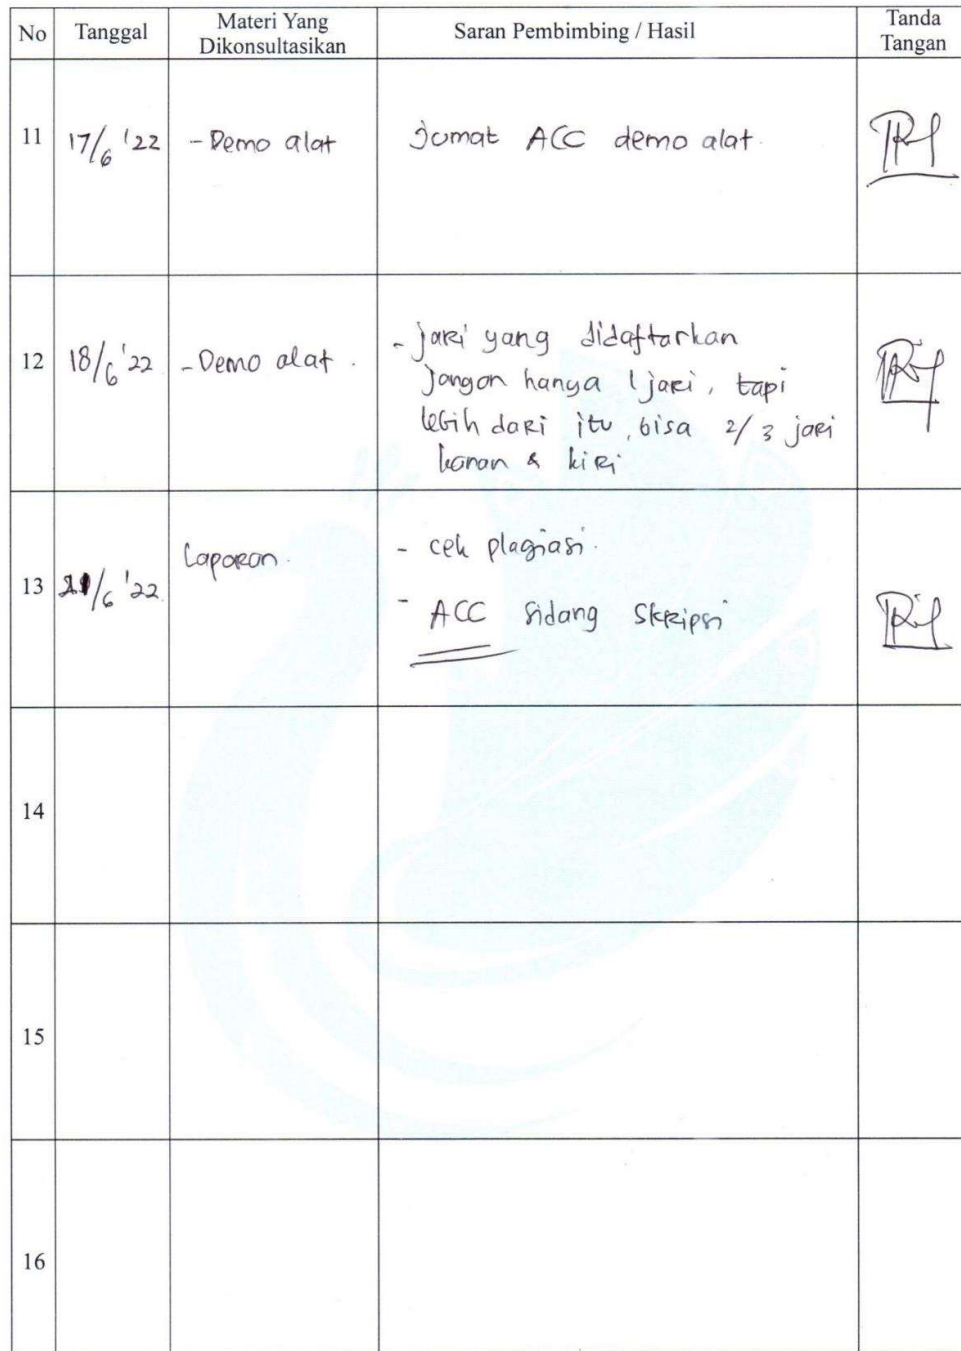 No Tanggal Materi Yang Dikonsultasikan Saran Pembimbing / Hasil Tanda Tangan
11 17/6 '22 - Demo alat Jumat ACC demo alat.
12 18/6 '22 - Demo alat. - jari yang didaftarkan
jangan hanya 1 jari, tapi
lebih dari itu, bisa 2/3 jari
kanan & kiri
13 21/6 '22 Laporan. - cek plagiasi.
- ACC sidang skripsi
14
15
16